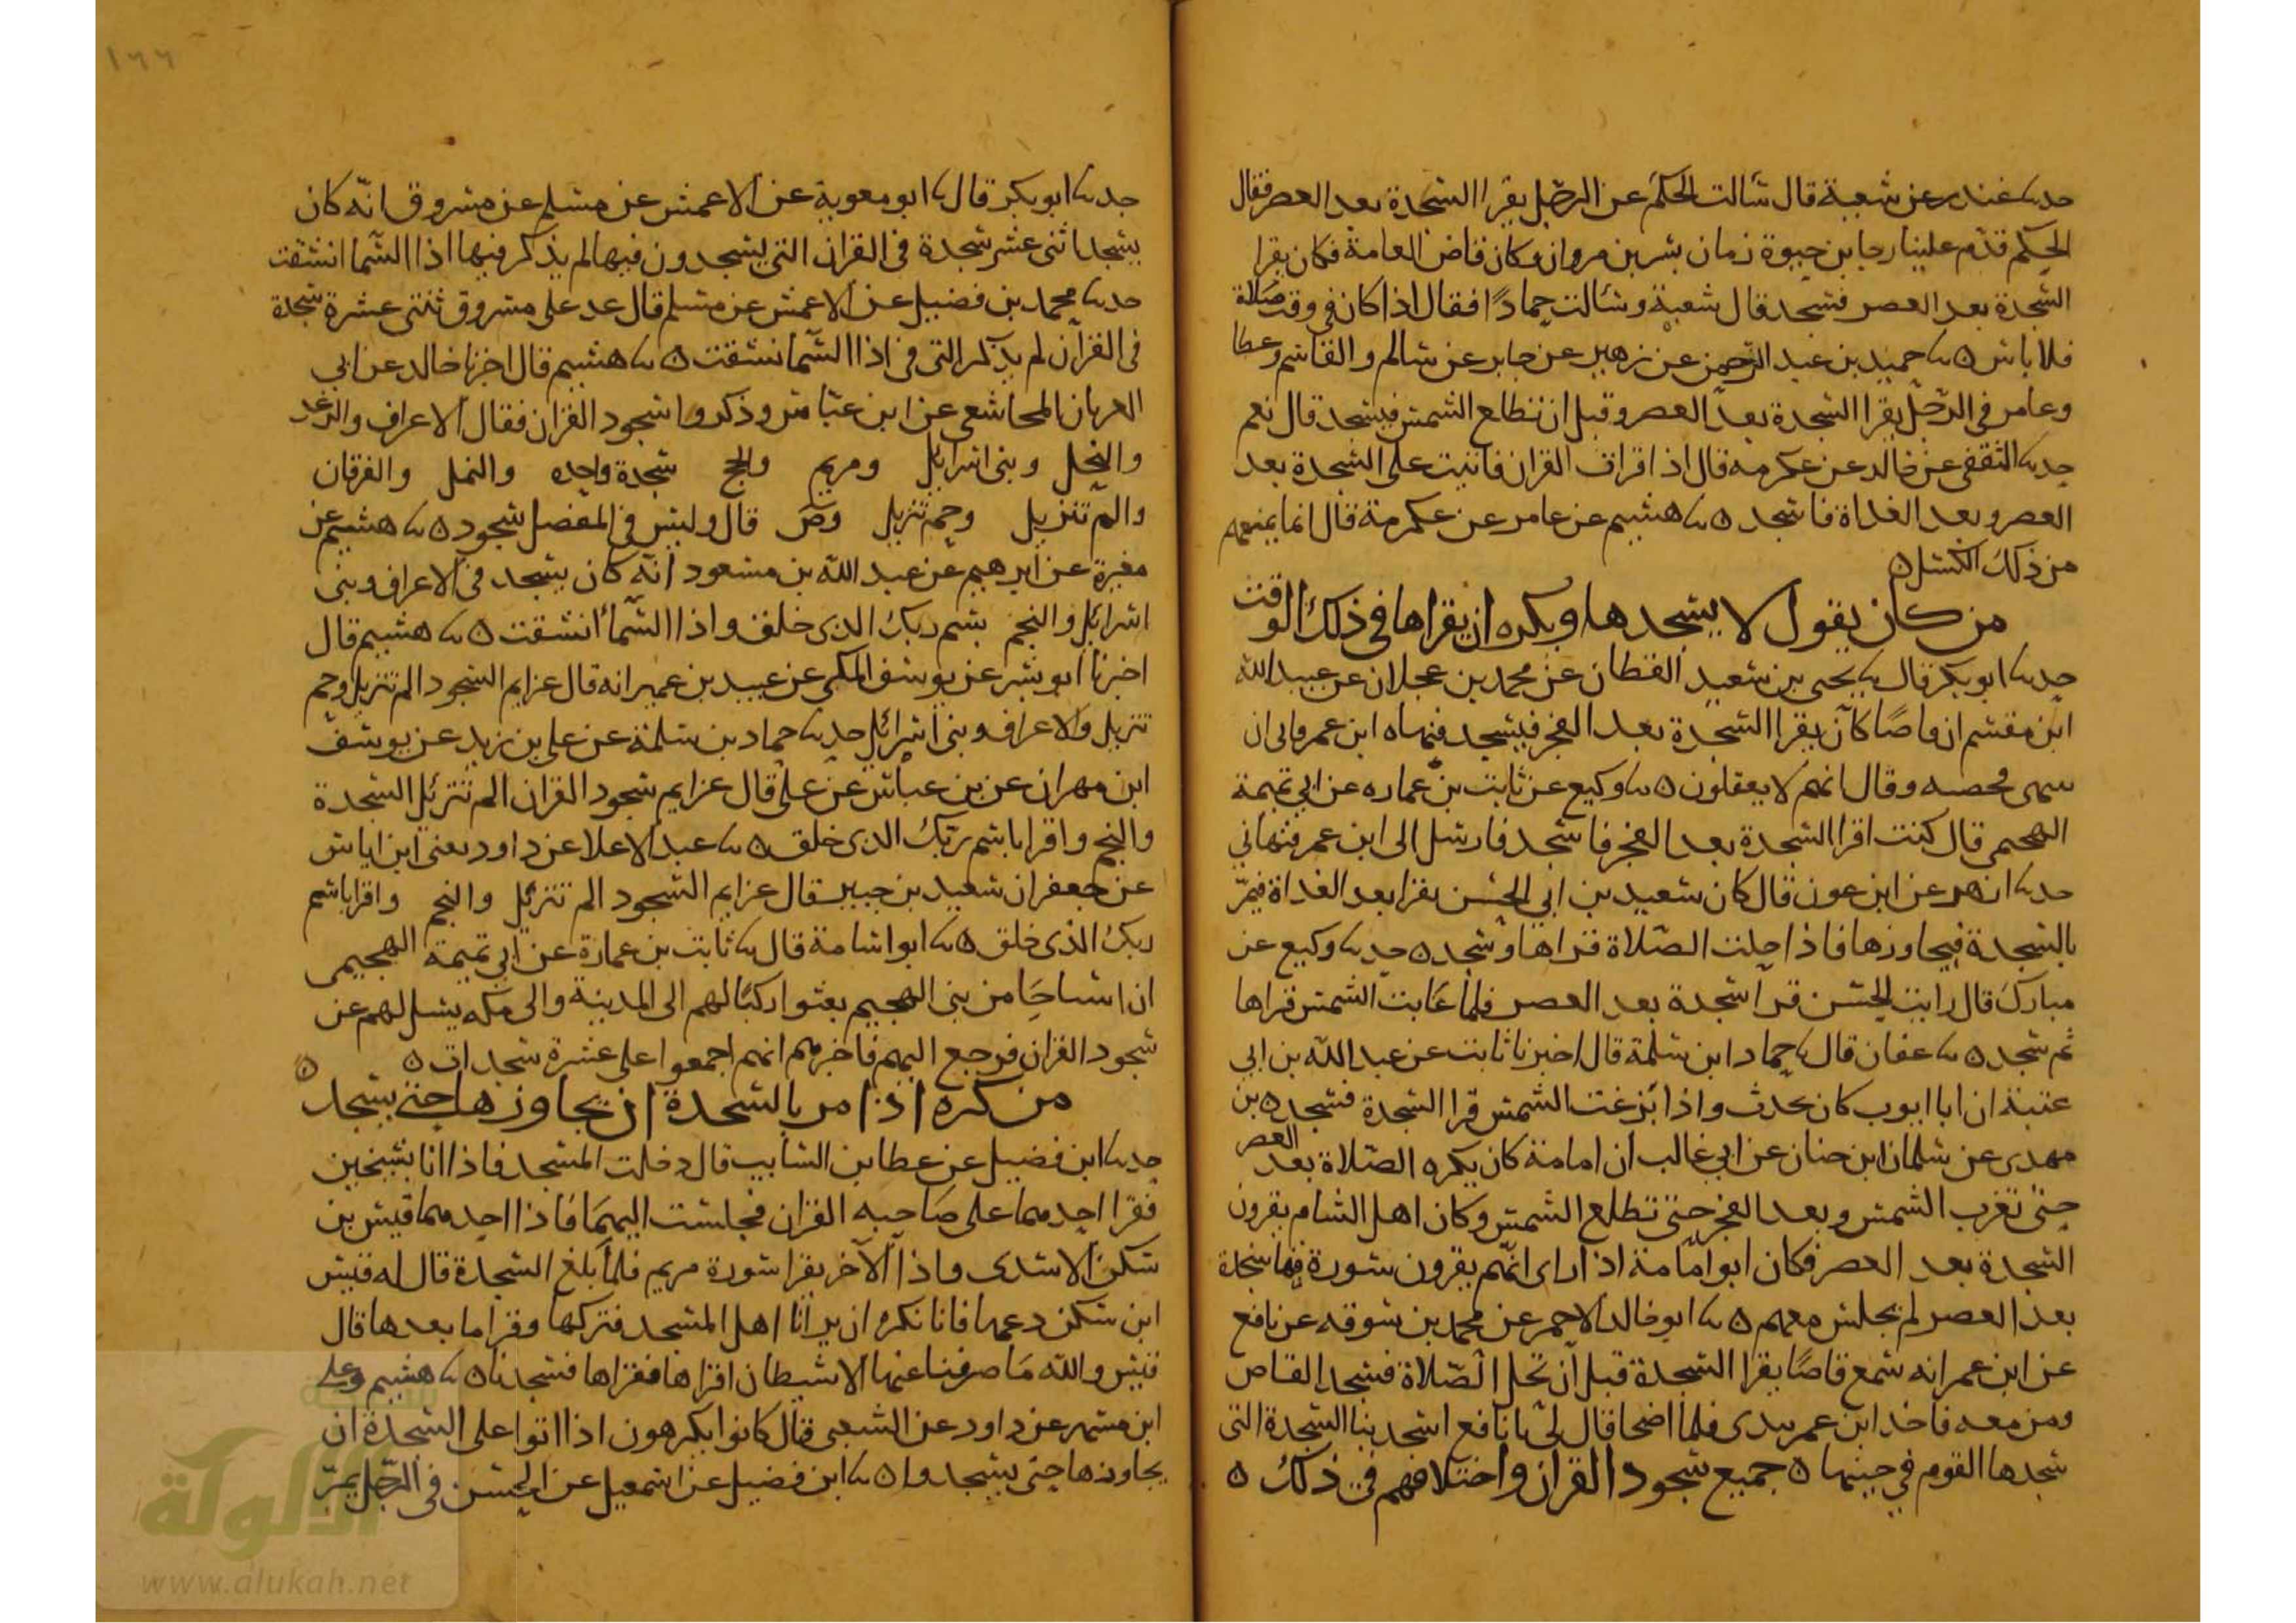 حدثنا غندر عن شعبة قال سالت الحكم عن الرجل يقرا السجدة بعد العصر فقال
الحكم قدم علينا رجا بن حيوة زمان بشر بن مروان وكان قاص العامة فكان يقرا
السجدة بعد العصر فسجد قال شعبة وسالت حمادًا فقال اذا كان في وقت صلاة
فلا باس ه نا حميد بن عبد الرحمن عن زهير عن جابر عن سالم والقاسم وعطا
وعامر في الرجل يقرا السجدة بعد العصر وقبل ان تطلع الشمس فيسجد قال نعم
حدثنا الثقفي عن خالد عن عكرمه قال اذا قرات القران فاتيت على السجدة بعد
العصر وبعد الغداة فاسجد ه نا هشيم عن عامر عن عكرمة قال انما يمنعهم
من ذلك الكسل ه
من كان يقول لا يسجدها ويكره ان يقراها في ذلك الوقت
حدثنا ابو بكر قال نا يحيى بن سعيد القطان عن محمد بن عجلان عن عبيد الله
ابن مقسم ان قاصًا كان يقرا السجدة بعد الفجر فيسجد فنهاه ابن عمر فابى ان
وقال انهم لا يعقلون ه نا وكيع عن ثابت بن عماره عن ابي تميمة
الهجيمي قال كنت اقرا السجدة بعد الفجر فاسجد فارسل الى ابن عمر فنهاني
حدثنا ازهر عن ابن عون قال كان سعيد بن ابي الحسن يقرا بعد الغداة فيمرّ
بالسجدة فيجاوزها فاذا حلت الصلاة قراها وسجد ه حدثنا وكيع عن
مبارك قال رايت الحسن قرا سجدة بعد العصر فلما غابت الشمس قراها
ثم سجد ه نا عفان قال نا حماد ابن سلمة قال اخبرنا ثابت عن عبد الله بن ابي
عتبة ان ابا ايوب كان يحدث واذا بزغت الشمس قرا السجدة فسجد ه بن
مهدي عن سلمان ابن حنان عن ابي غالب ان امامة كان يكره الصلاة بعد العصر
حتى تغرب الشمس وبعد الفجر حتى تطلع الشمس وكان اهل الشام يقرون
السجدة بعد العصر فكان ابو امامة اذا راى انهم يقرون سورة فيها سجدة
بعد العصر لم يجلس معهم ه نا ابو خالد الاحمر عن محمد بن سوقه عن نافع
عن ابن عمر انه سمع قاصًا يقرا السجدة قبل ان تحل الصلاة فسجد القاص
ومن معه فاخذ ابن عمر بيدي فلما اضحا قال لي يا نافع اسجد بنا السجدة التي
سجدها القوم في حينها ه جميع سجود القران واختلافهم في ذلك ه
١٦٦
حدثنا ابو بكر قال نا ابو معوية عن الاعمش عن مسلم عن مسروق انه كان
يسجد اثنى عشر سجدة في القران التي يسجدون فيها لم يذكر فيها اذا السما انشقت
حدثنا محمد بن فضيل عن الاعمش عن مسلم قال عد على مسروق ثنتي عشرة سجدة
في القران لم يذكر التي في اذا السما انشقت ه نا هشيم قال اخبرنا خالد عن ابي
العريان المجاشعي عن ابن عباس وذكروا سجود القران فقال الاعراف والرعد
والنحل وبنى اسرايل ومريم والحج سجدة واحده والنمل والفرقان
والم تنزيل وحم تنزيل وص قال وليس في المفصل سجود ه نا هشيم عن
مغيرة عن ابرهيم عن عبد الله بن مسعود انه كان يسجد في الاعراف وبنى
اسرائل والنجم بسم ربك الذي خلق واذا السما انشقت ه نا هشيم قال
اخبرنا ابو بشر عن يوسف المكي عن عبيد بن عمير انه قال عزايم السجود الم تنزيل وحم
تنزيل والاعراف وبنى اسرائل حدثنا حماد بن سلمة عن علي بن زيد عن يوسف
ابن مهران عن بن عباس عن علي قال عزايم سجود القران الم تنزئل السجدة
والنجم واقرا باسم ربك الذي خلق ه نا عبد الاعلا عن داود يعني ابن اياس
عن جعفر ان سعيد بن جبير قال عزايم السجود الم تنزئل والنجم واقرا باسم
ربك الذي خلق ه نا ابو اسامة قال نا ثابت بن عمارة عن ابي تميمة الهجيمي
ان اشياخا من بني الهجيم بعثوا ركبًا لهم الى المدينة والى مكه يسل لهم عن
سجود القران فرجع اليهم فاخبرهم انهم اجمعوا على عشرة سجدات ه
من كره اذا مر بالسجدة ان يجاوزها حتى يسجد ه
حدثنا ابن فضيل عن عطا بن السايب قال دخلت المسجد فاذا انا بشيخين
فقرا احدهما على صاحبه القران فجلست اليهما فاذا احدهما قيس بن
سكن الاسدى واذا الاخر يقرا سورة مريم فلما بلغ السجدة قال له قيس
ابن سكن دعها فانا نكره ان يرانا اهل المسجد فتركها وقرا ما بعدها قال
قيس والله ما صرفنا عنها الا شيطان اقراها فقراها فسجدنا ه نا هشيم وعلي
ابن مسهر عن داود عن الشعبي قال كانوا يكرهون اذا اتوا على السجدة ان
يجاوزها حتى يسجدوا ه نا ابن فضيل عن اسمعيل عن الحسن في الرجل يمرّ
الألوكة
www.alukah.net